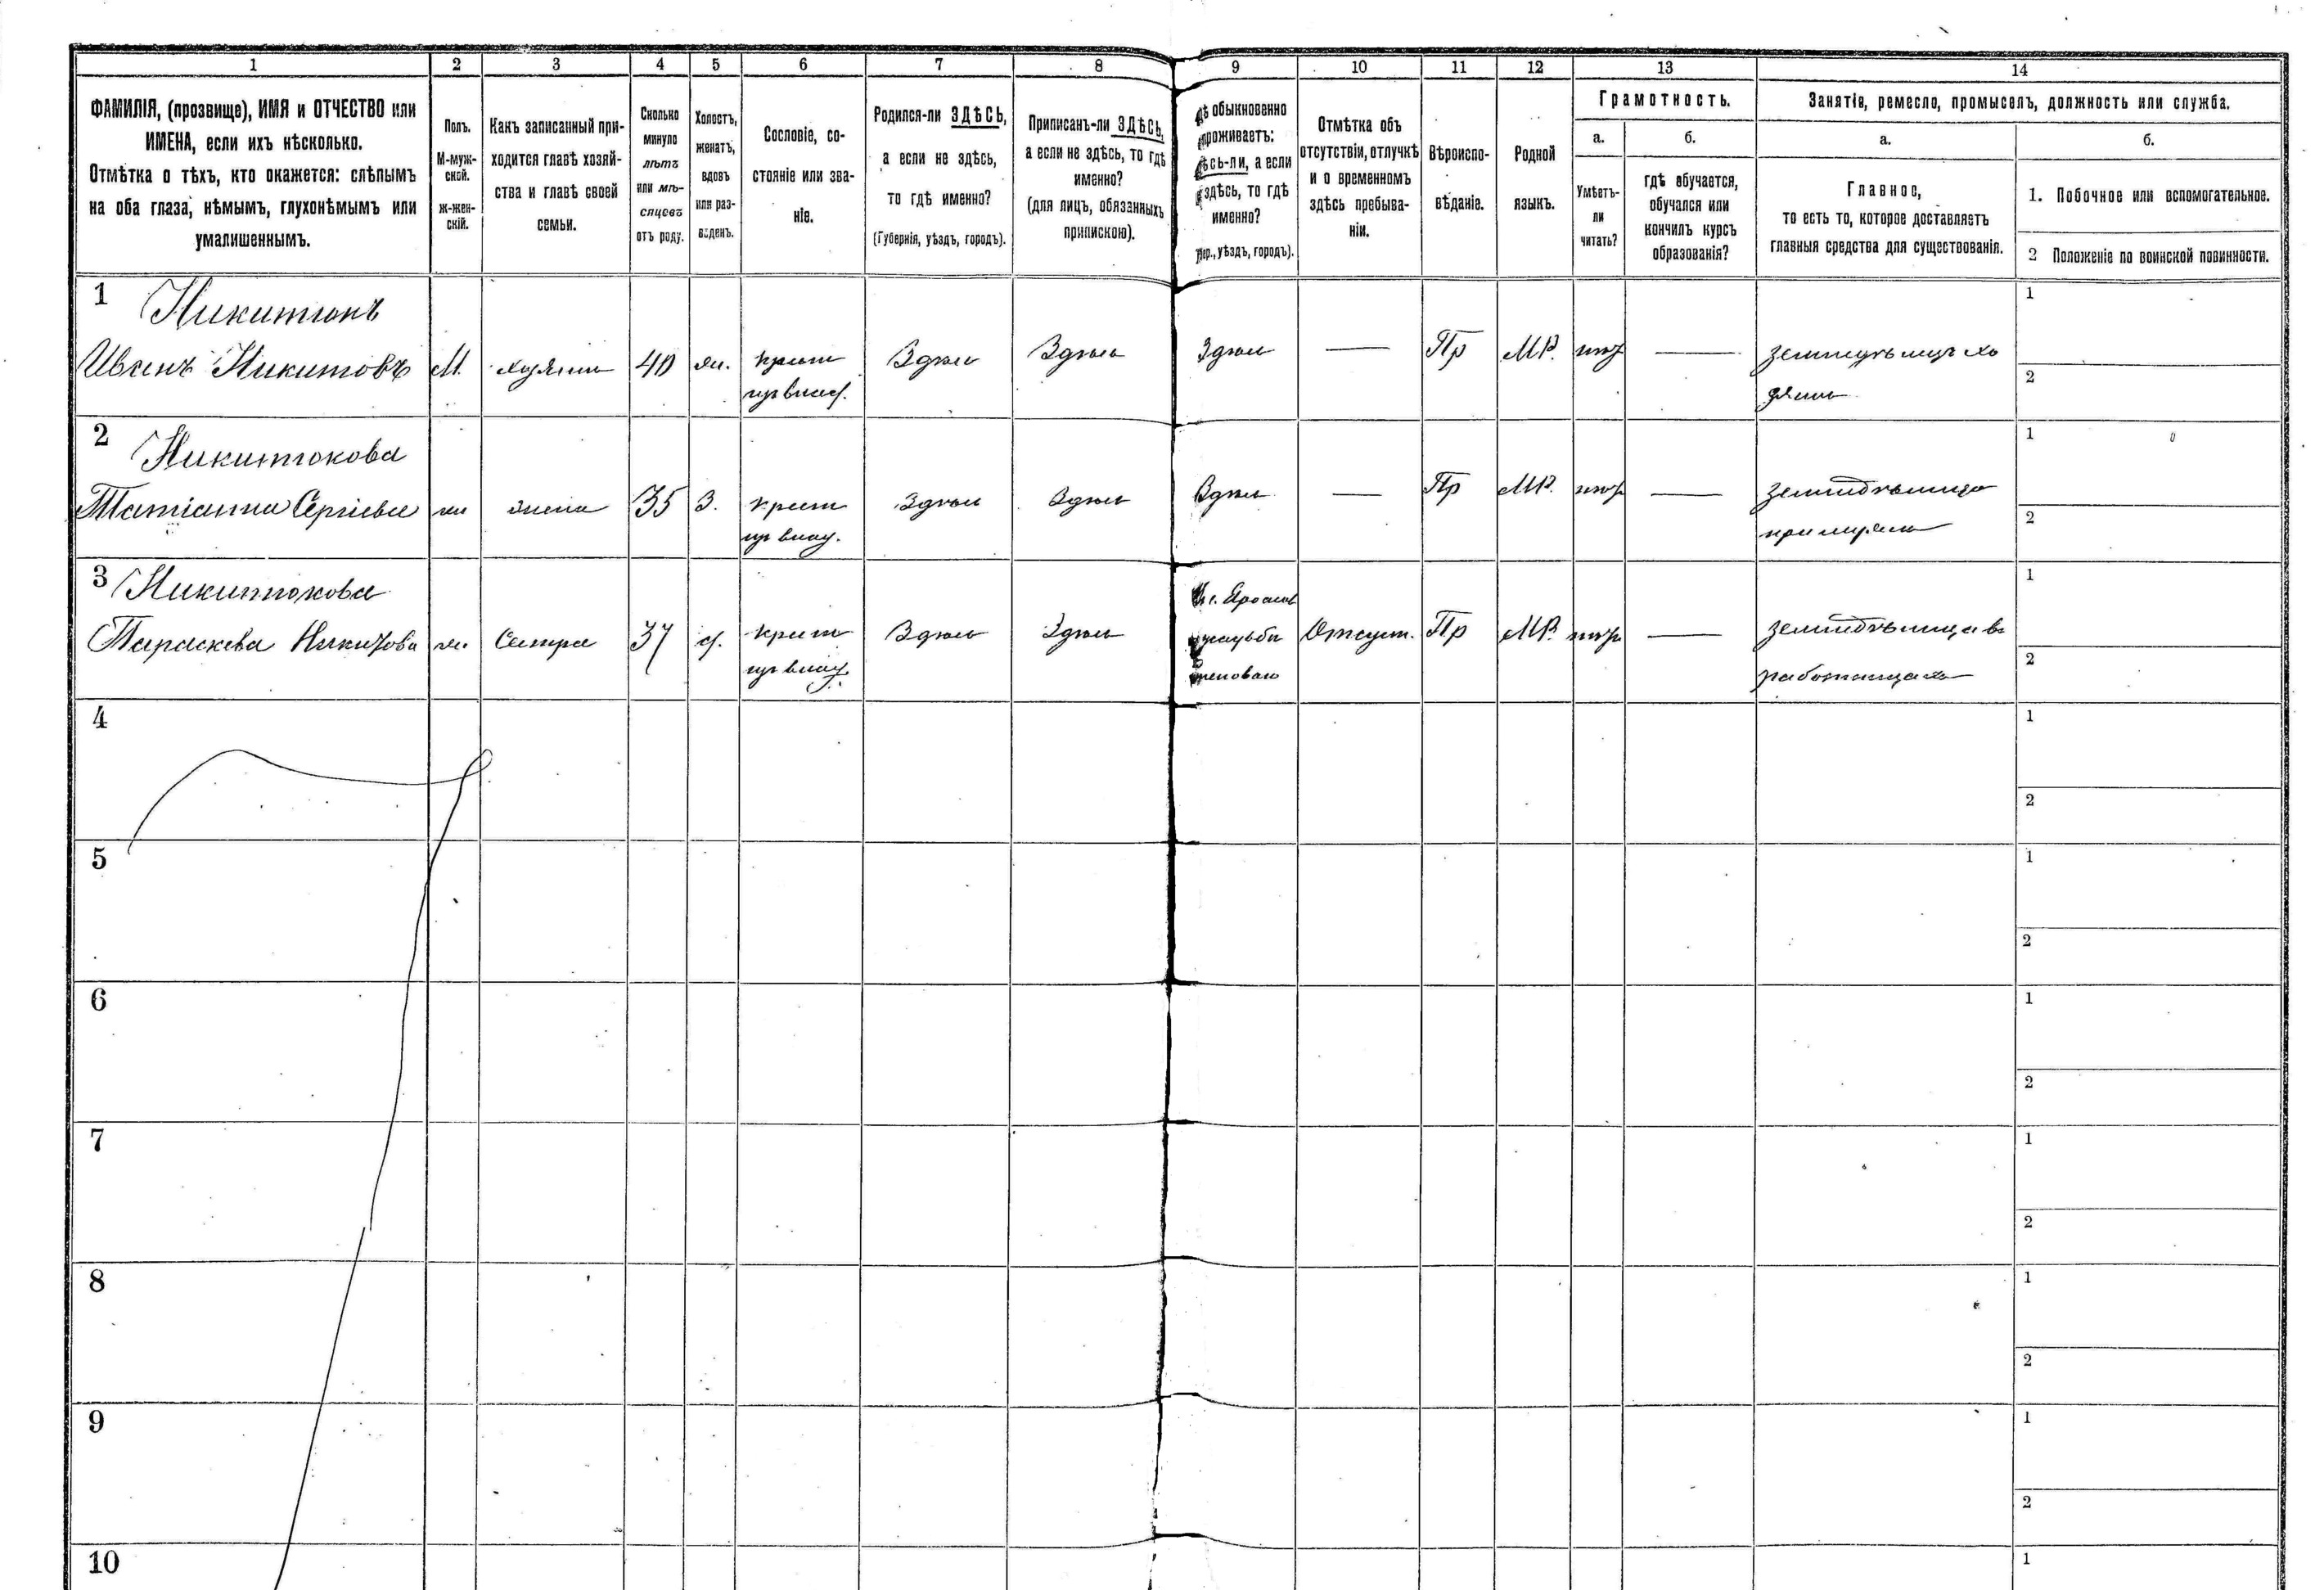 1 2 3 4 5 6 7 8 9 10 11 12 13 14
ФАМИЛІЯ, (прозвище), ИМЯ и ОТЧЕСТВО или
ИМЕНА, если ихъ нѣсколько.
Отмѣтка о тѣхъ, кто окажется: слѣпымъ
на оба глаза, нѣмымъ, глухонѣмымъ или
умалишеннымъ.
Полъ.
М-муж-
ской.
Ж-жен-
скій.
Какъ записанный при-
ходится главѣ хозяй-
ства и главѣ своей
семьи.
Сколько
минуло
лѣтъ
или мѣ-
сяцевъ
отъ роду.
Холостъ,
женатъ,
вдовъ
или раз-
веденъ.
Сословіе, со-
стояніе или зва-
ніе.
Родился-ли ЗДѢСЬ,
а если не здѣсь,
то гдѣ именно?
(Губернія, уѣздъ, городъ).
Приписанъ-ли ЗДѢСЬ,
а если не здѣсь, то гдѣ
именно?
(для лицъ, обязанныхъ
припискою).
дѣ обыкновенно
проживаетъ:
здѣсь-ли, а если
здѣсь, то гдѣ
именно?
уѣздъ, городъ).
Отмѣтка объ
отсутствіи, отлучкѣ
и о временномъ
здѣсь пребыва-
ніи.
Вѣроиспо-
вѣданіе.
Родной
языкъ.
Грамотность.
а.
Умѣетъ-
ли
читать?
б.
гдѣ обучается,
обучался или
кончилъ курсъ
образованія?
Занятіе, ремесло, промыселъ, должность или служба.
а.
Главное,
то есть то, которое доставляетъ
главныя средства для существованія.
б.
1. Побочное или вспомогательное.
2 Положеніе по воинской повинности.
1 Никитюкъ
Иванъ Никитовъ М. хозяинъ 40 ж. крест Здѣсь Здѣсь Здѣсь — Пр МР. нѣт — земледѣлецъ хо
изъ влад. зяинъ
1
2
2 Никитюкова
Татіанна Сергіева ж жена 35 З. крест Здѣсь Здѣсь Здѣсь — Пр МР. нѣт — земледѣлица
изъ влад. при мужѣ
1
2
3 Никитюкова
Параскева Никитова ж. Сестра 37 д. крест Здѣсь Здѣсь усадьба Отсут. Пр МР. нѣт — земледѣлица въ
изъ влад. работницахъ
1
2
4
1
2
5
1
2
6
1
2
7
1
2
8
1
2
9
1
2
10
1